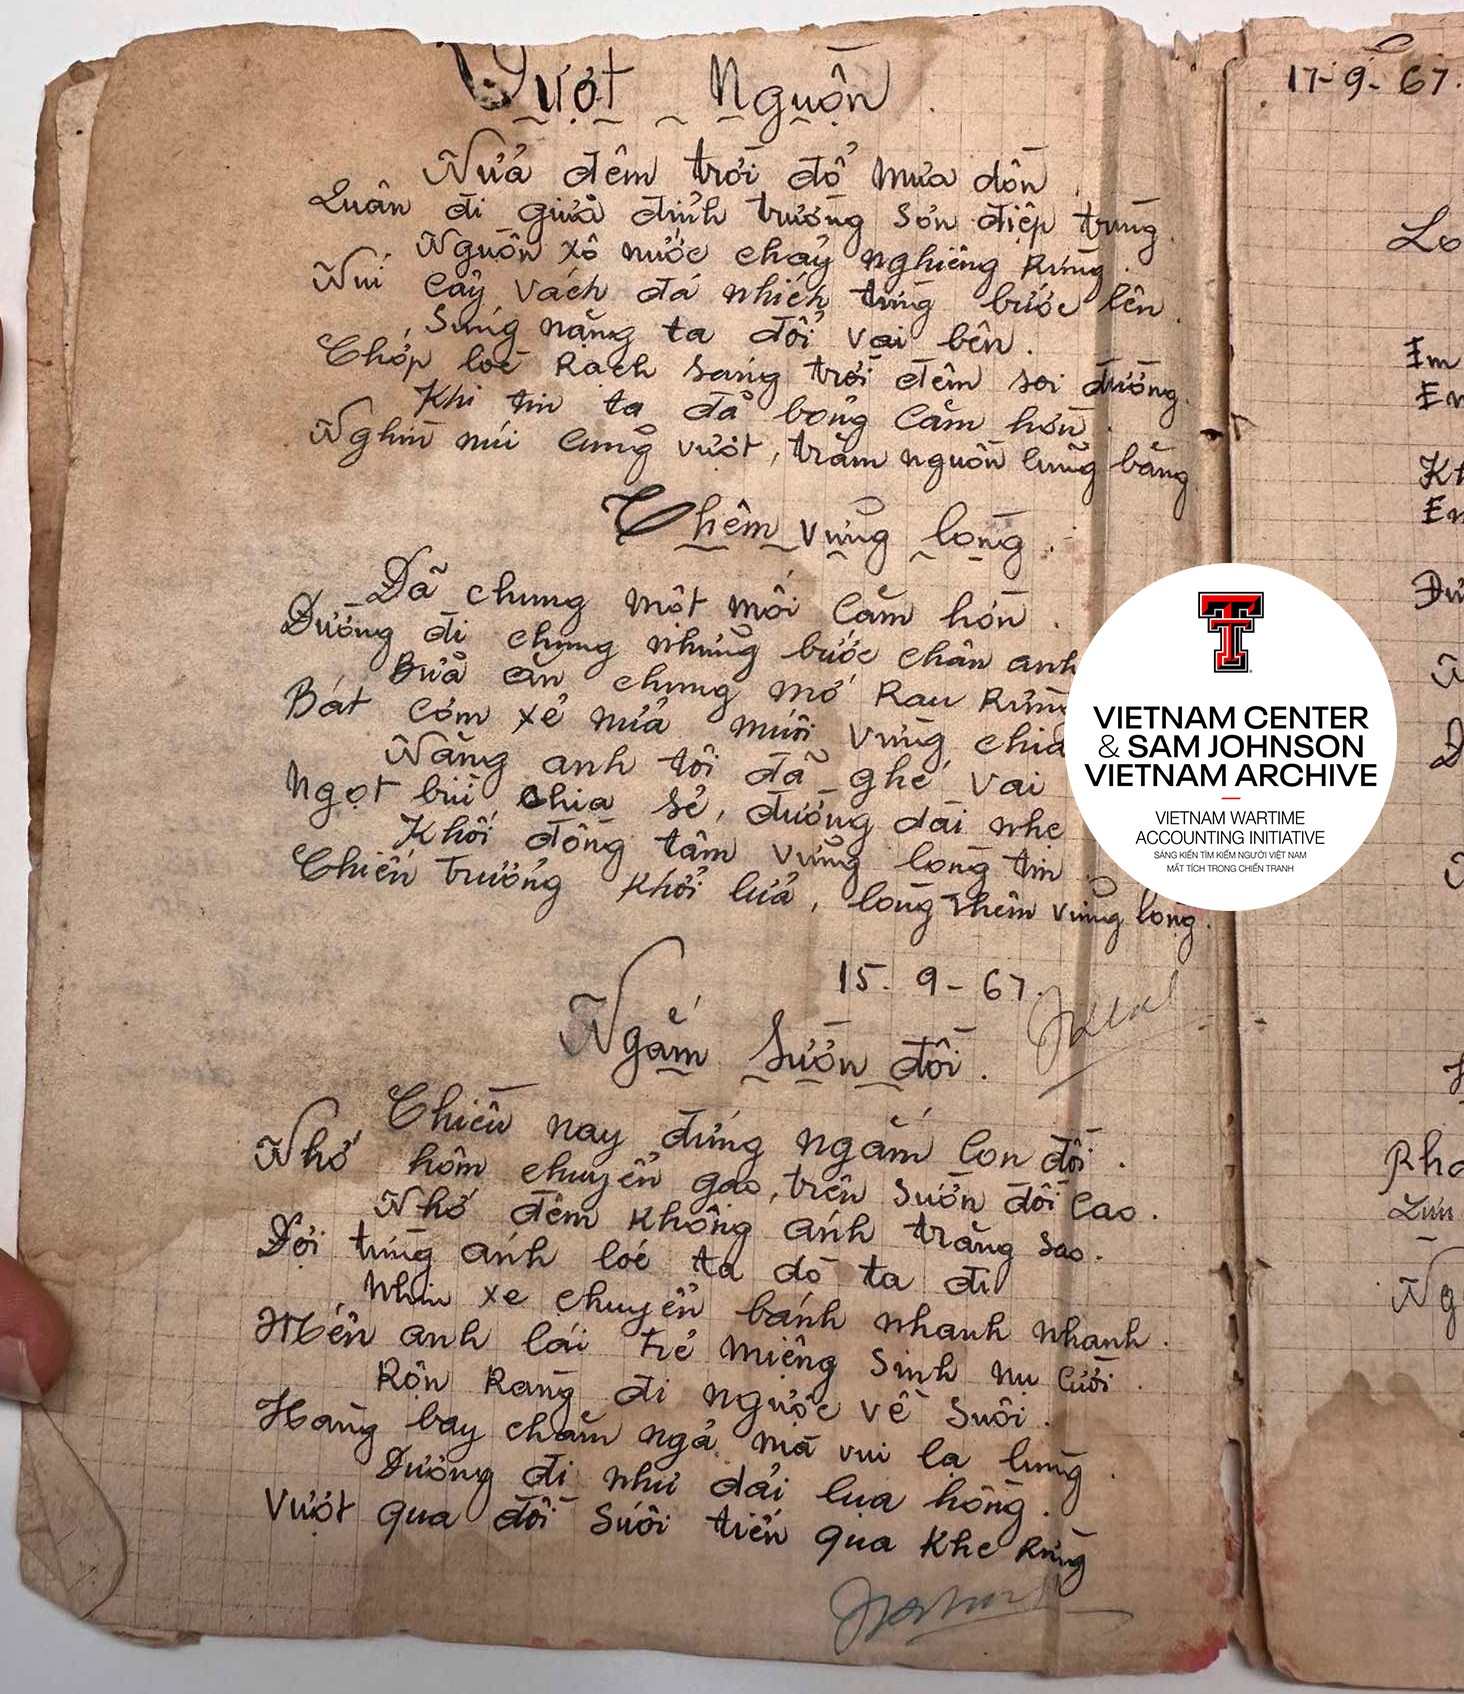 Vượt Nguồn.
Nửa đêm trời đổ mưa dồn.
Luân đi giữa đỉnh trường sơn điệp trùng
Nguồn xô nước chảy nghiêng Rừng.
Núi cây vách đá nhích từng bước lên.
Súng nặng ta đổi vai bên.
Chớp loè Rạch sáng trời đêm soi đường.
Khi tim ta đã bỏng căm hờn.
Nghìn núi cũng vượt, trăm nguồn cũng băng
Thêm vững lòng.
Đã chung một mối căm hờn.
Đường đi chung những bước chân anh
Bữa ăn chung mớ Rau Rừng
Bát cơm xẻ nửa muối vừng chia
Nặng anh tôi đã ghé vai
Ngọt bùi chia sẻ, đường dài nhẹ
Khối đồng tâm vững lòng tin
Chiến trường khói lửa, lòng thêm vững lòng.
15-9-67.
Ngắm Sườn đồi.
Chiều nay đứng ngắm con đồi.
Nhớ hôm chuyển gạo, trên sườn đồi cao.
Nhớ đêm không ánh trăng sao.
Đợi từng ánh loé ta dò ta đi
Nhìn xe chuyển bánh nhanh nhanh.
Mến anh lái trẻ miệng sinh nụ cười.
Rộn Ràng đi ngược về Suôi.
Hàng bay chăm ngả mà vui lạ lùng.
Đường đi như dải lụa hồng.
Vượt qua đồi Suối tiến qua khe Rừng
17-9-67.
Em
VIETNAM CENTER
& SAM JOHNSON
VIETNAM ARCHIVE
VIETNAM WARTIME
ACCOUNTING INITIATIVE
SÁNG KIẾN TÌM KIẾM NGƯỜI VIỆT NAM
MẤT TÍCH TRONG CHIẾN TRANH